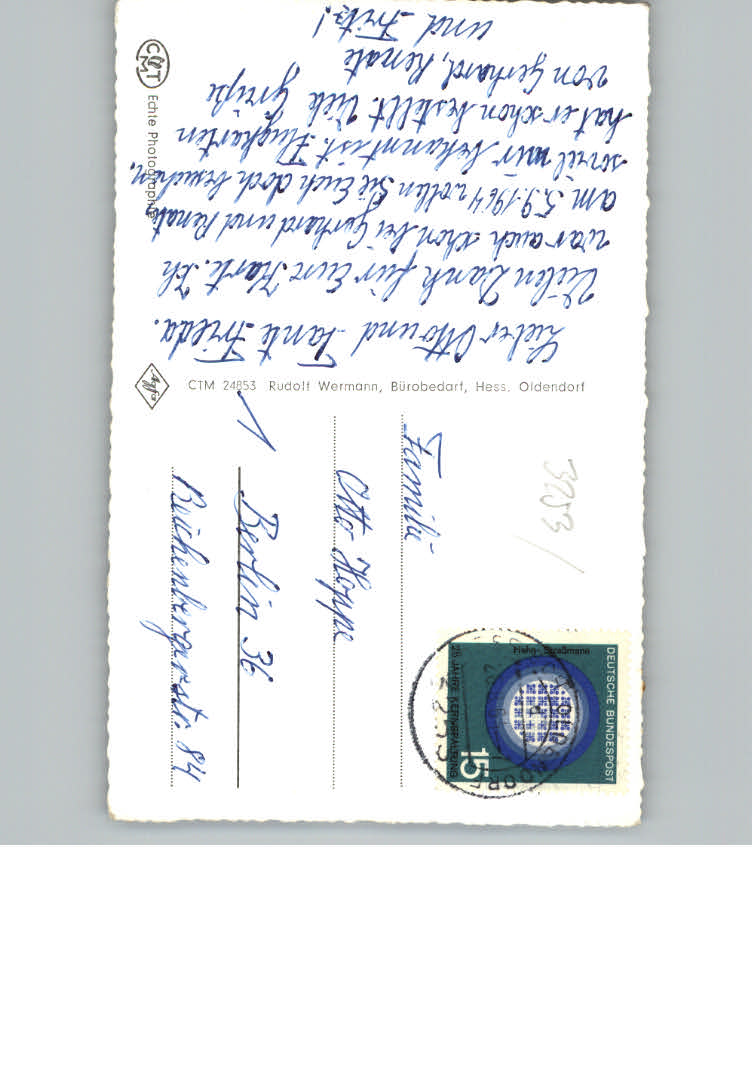 Lieber Otto und Tante Frieda.
Vielen Dank für Eure Karte. Ich
war auch schon bei Gerhard und Renate
am 5.9.1964 wollen Sie Euch doch besuchen,
soviel mir bekannt ist. Flugkarten
hat er schon bestellt. Viele Grüße
von Gerhard, Renate
und Fritz!
CMT
Echte Photographie
Agfa
CTM 24853 Rudolf Wermann, Bürobedarf, Hess. Oldendorf
3253
DEUTSCHE BUNDESPOST
Hahn-Straßmann
25 JAHRE KERNSPALTUNG
15
OLDENDORF
Familie
Otto Hoppe
1 Berlin 36
Reichenbergerstr. 84